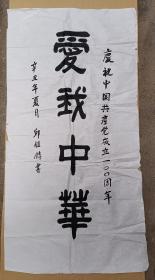 慶祝中国共產党成立一〇〇周年
愛我中華
辛丑年夏月
書